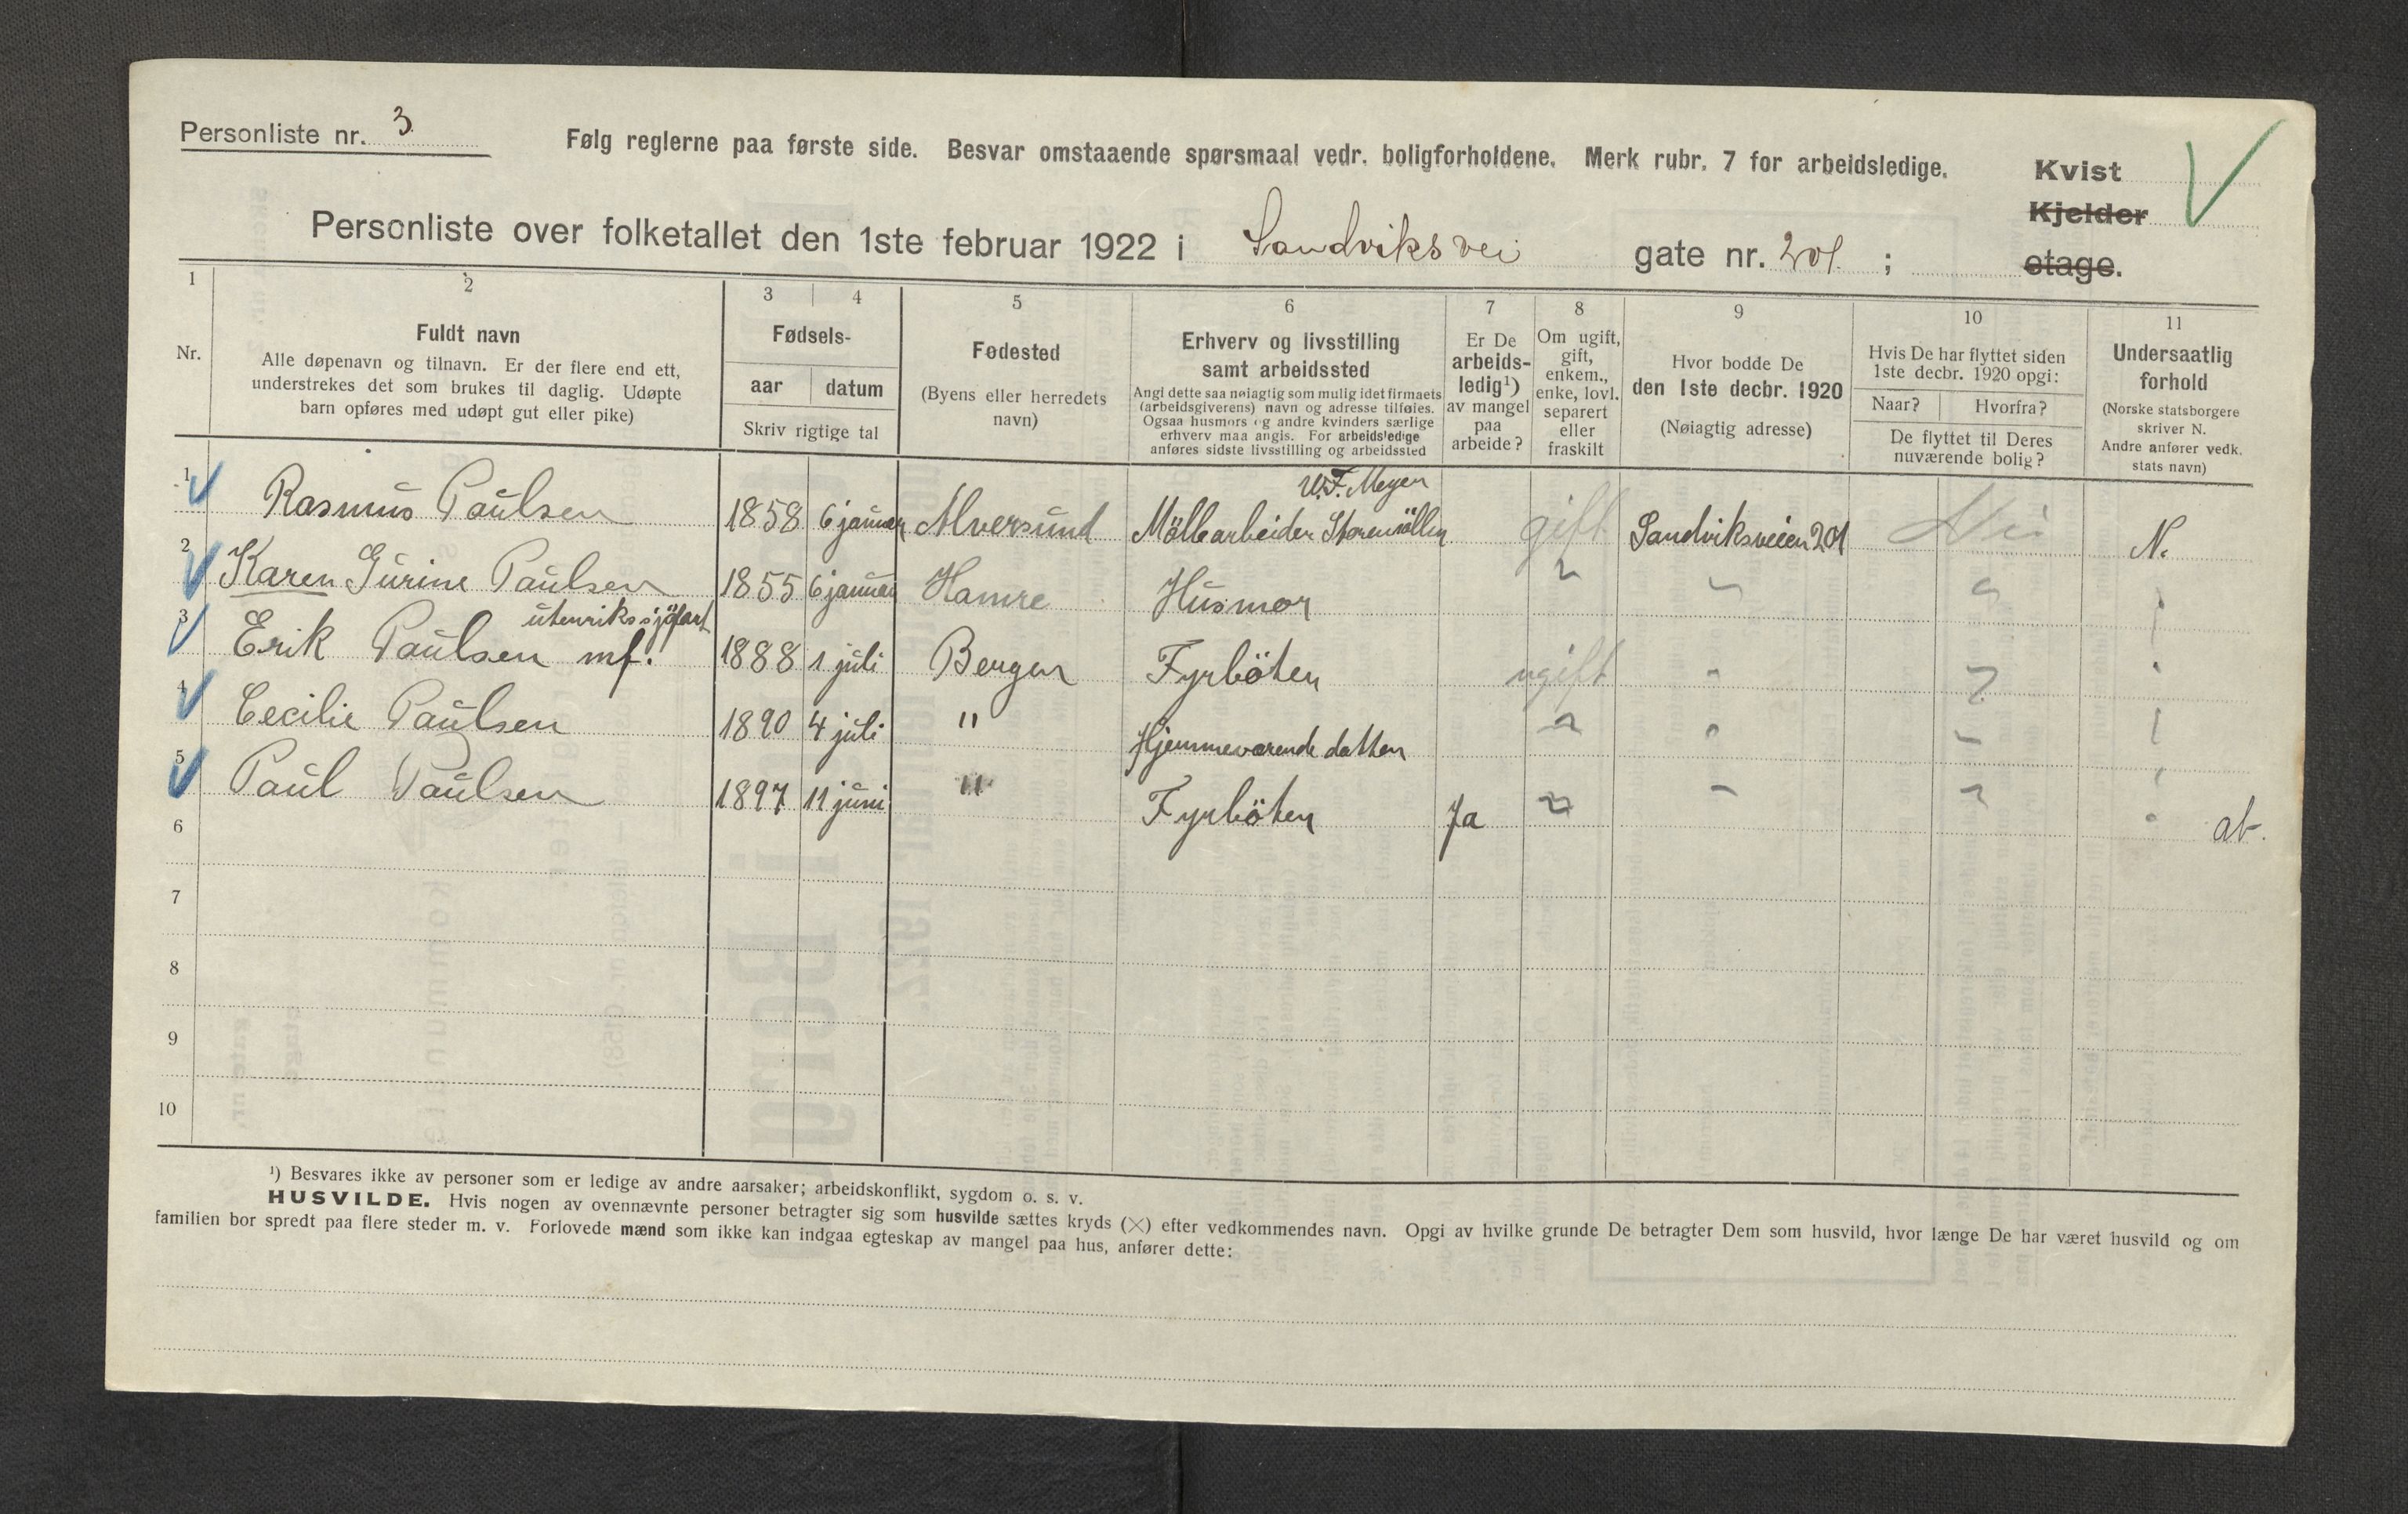 Personliste nr. 3
Følg reglerne paa første side. Besvar omstaaende spørsmaal vedr. boligforholdene. Merk rubr. 7 for arbeidsledige.
Kvist
Kjelder
etage.
Personliste over folketallet den 1ste februar 1922 i Sandviksvei gate nr. 201 ;
1 2 3 4 5 6 7 8 9 10 11
Nr.
Fuldt navn
Alle døpenavn og tilnavn. Er der flere end ett,
understrekes det som brukes til daglig. Udøpte
barn opføres med udøpt gut eller pike)
Fødsels-
aar datum
Skriv rigtige tal
Fødested
(Byens eller herredets
navn)
Erhverv og livsstilling
samt arbeidssted
Angi dette saa nøiagtig som mulig idet firmaets
(arbeidsgiverens) navn og adresse tilføies.
Ogsaa husmors og andre kvinders særlige
erhverv maa angis. For arbeidsledige
anføres sidste livsstilling og arbeidssted
Er De
arbeids-
ledig¹)
av mangel
paa
arbeide?
Om ugift,
gift,
enkem.,
enke, lovl.
separert
eller
fraskilt
Hvor bodde De
den 1ste decbr. 1920
(Nøiagtig adresse)
Hvis De har flyttet siden
1ste decbr. 1920 opgi:
Naar? Hvorfra?
De flyttet til Deres
nuværende bolig?
Undersaatlig
forhold
(Norske statsborgere
skriver N.
Andre anfører vedk.
stats navn)
W.F. Meyen
1 Rasmus Paulsen 1858 6 januar Alversund Möllearbeider Storemöllen gift Sandviksveien 201 Nei N.
2 Karen Gurine Paulsen 1855 6 januar Hamre Husmor "  "  "
utenriks sjöfart
3 Erik Paulsen mf. 1888 1 juli Bergen Fyrböter ugift " " "
4 Cecilie Paulsen 1890 4 juli " Hjemmeværende datter " " " "
5 Paul Paulsen 1897 11 juni " Fyrböter Ja " " " "
6 ab.
7
8
9
10
¹) Besvares ikke av personer som er ledige av andre aarsaker; arbeidskonflikt, sygdom o. s. v.
HUSVILDE. Hvis nogen av ovennævnte personer betragter sig som husvilde sættes kryds (×) efter vedkommendes navn. Opgi av hvilke grunde De betragter Dem som husvild, hvor længe De har været husvild og om
familien bor spredt paa flere steder m. v. Forlovede mænd som ikke kan indgaa egteskap av mangel paa hus, anfører dette: